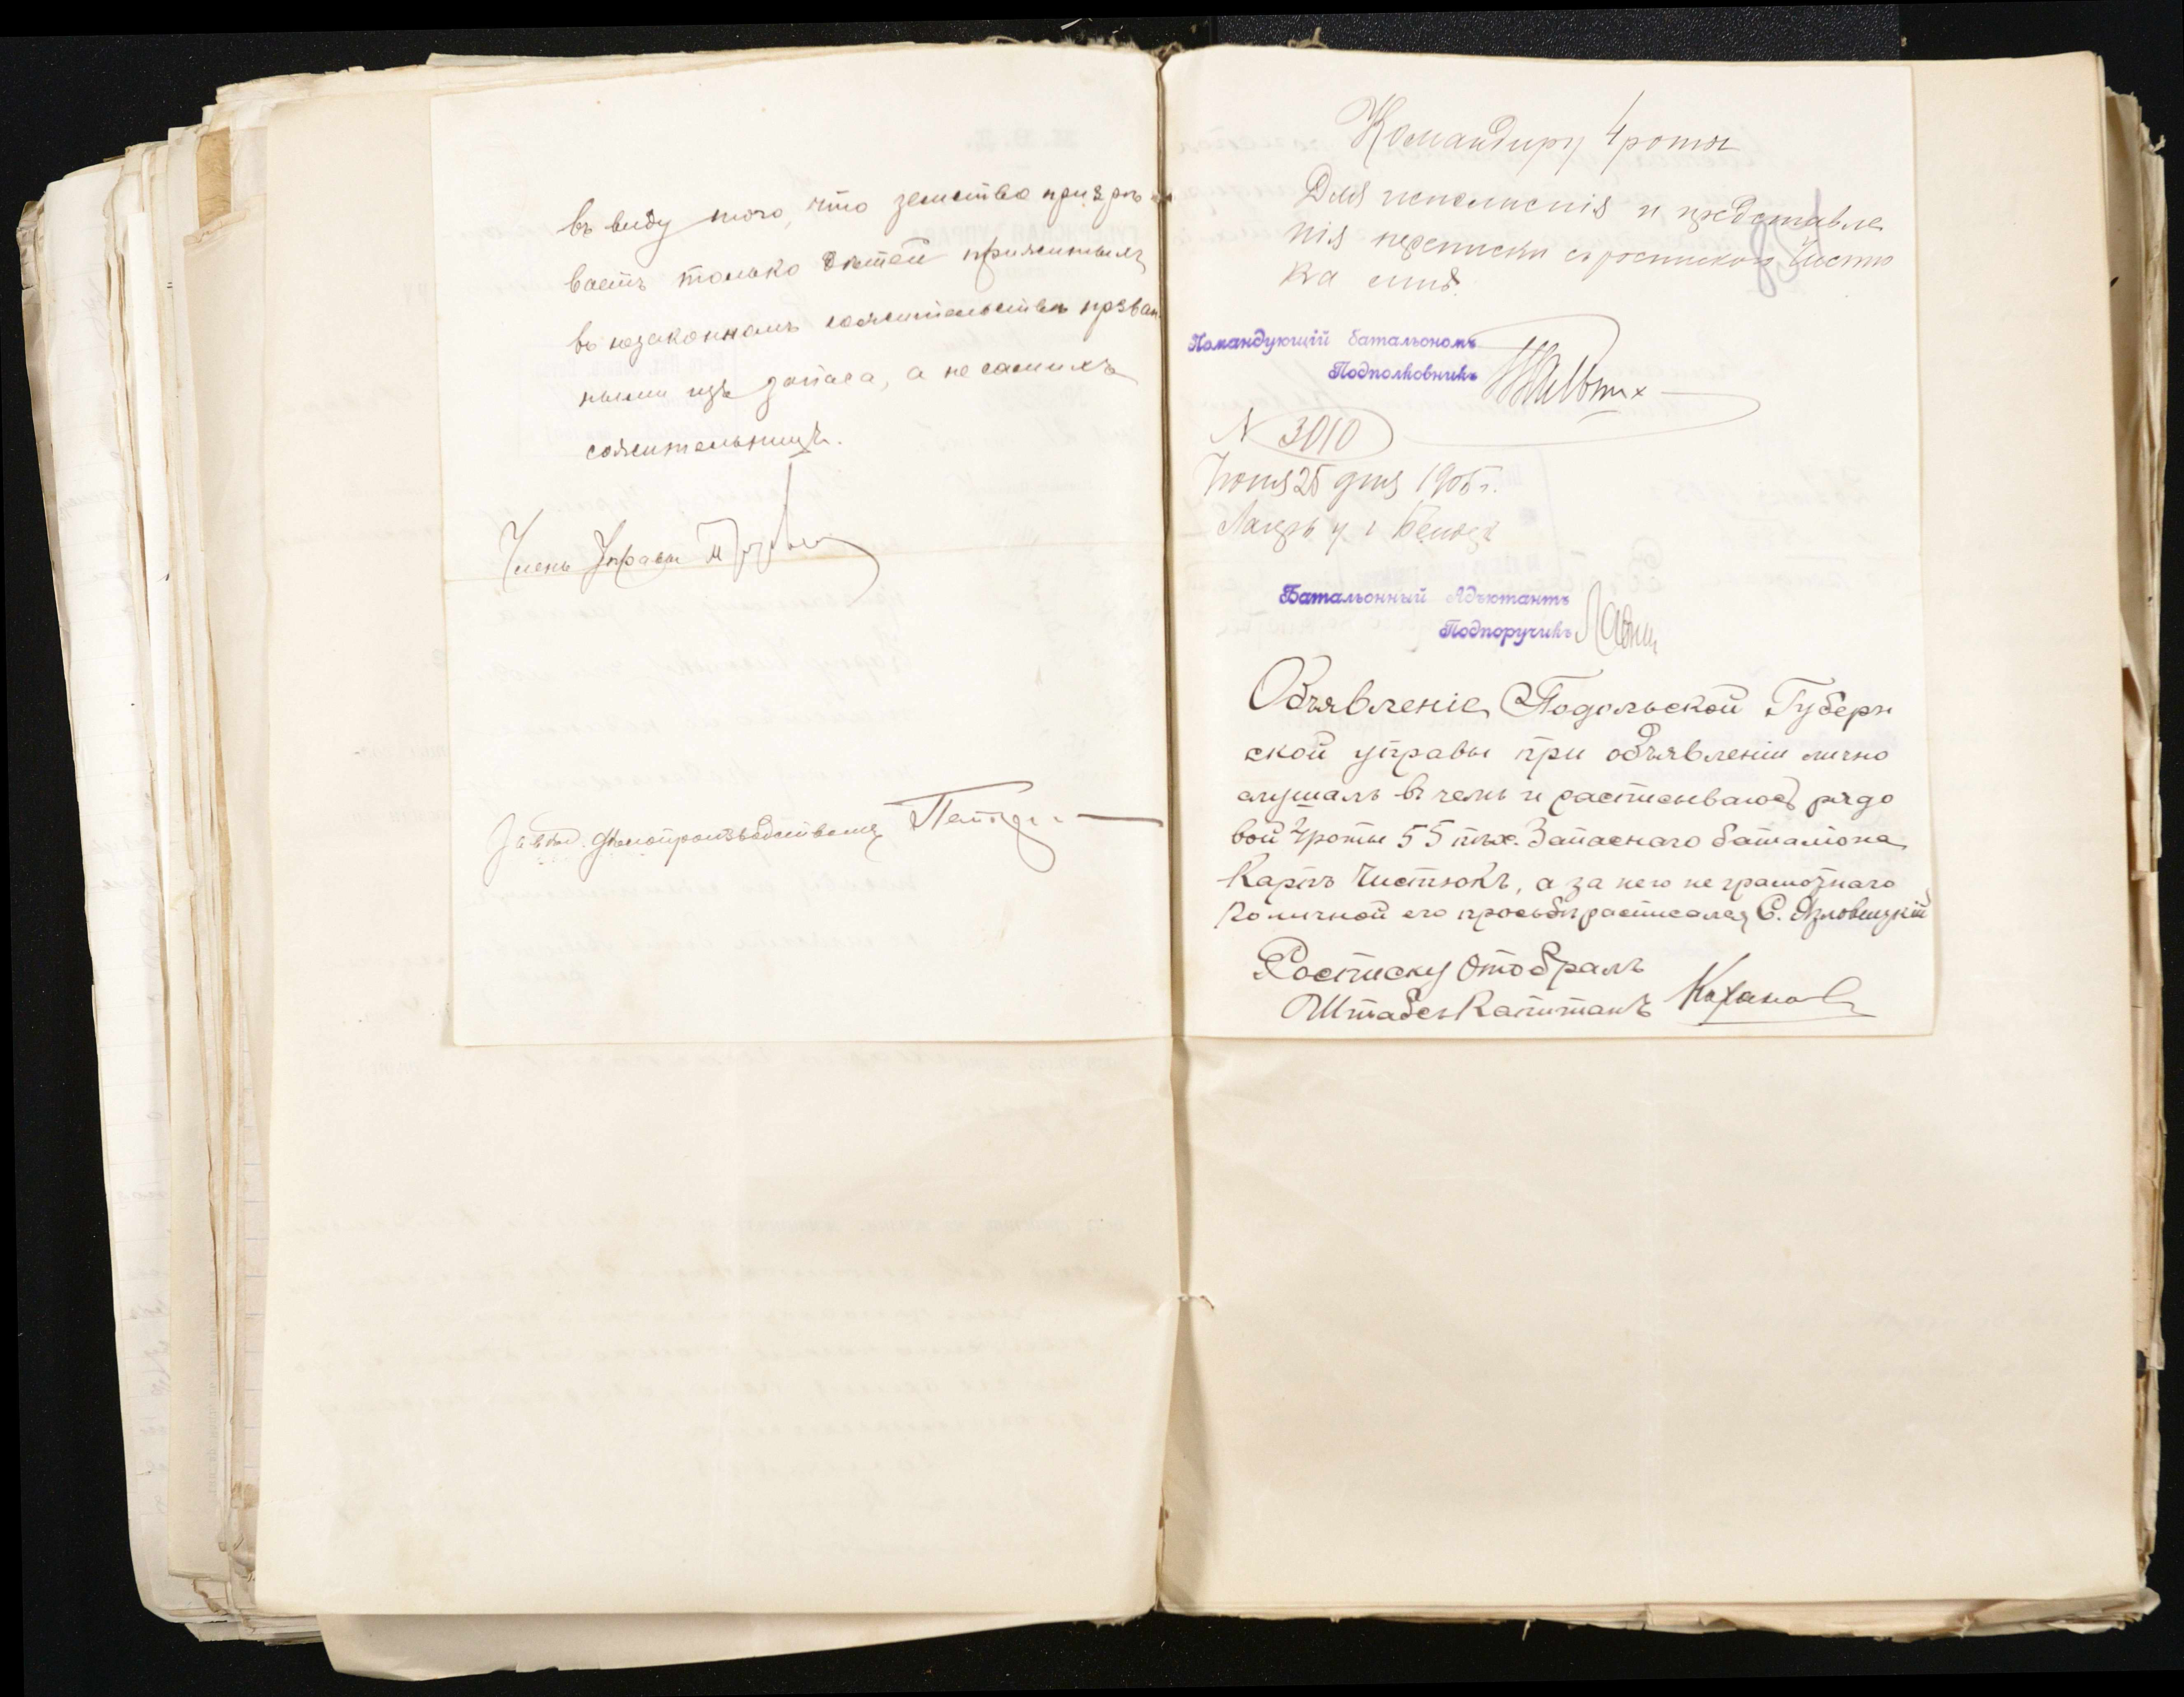 въ виду того, что земство призрѣ
ваетъ только дѣтей прижитыхъ
въ незаконномъ сожительствѣ призван
ными изъ запаса, а не самихъ
сожительницъ.
Членъ Управы
Завѣд. дѣлопроизводствомъ
Командиру 4 роты
Для исполненія и представле
нія переписки съ роспиской Чистю
ка
Командующій батальономъ
Подполковникъ
N 3010
Іюня 25 дня 1905 г.
Лагерь у г Бендеръ
Батальонный Адъютантъ
Подпоручикъ
Объявленіе Подольской Губерн
ской управы при объявленіи лично
слушалъ въ чемъ и расписываюсь рядо
вой 4 роты 55 пѣх. Запаснаго баталіона
Карпъ Чистюкъ, а за него неграмотнаго
по личной его просьбѣ расписался С. Язловецкій
Росписку отобралъ
Штабсъ Капитанъ